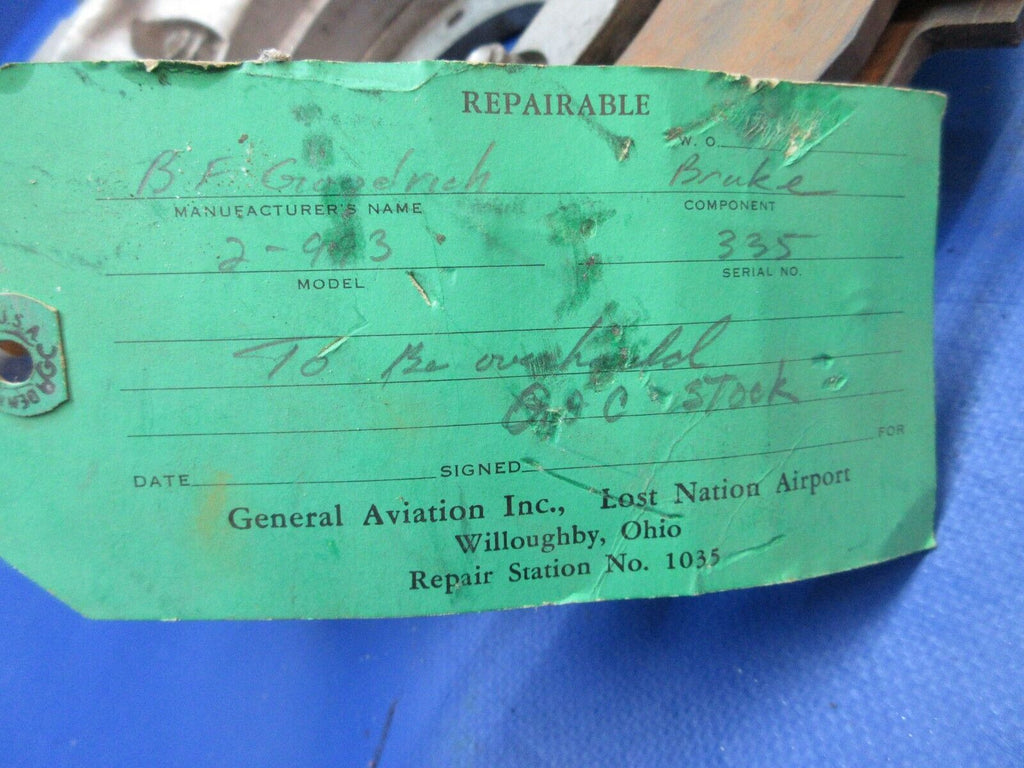 REPAIRABLE
W. O.
B F Goodrich Brake
MANUFACTURER'S NAME COMPONENT
335
MODEL SERIAL NO.
To Be overhauled
Stock
FOR
DATE SIGNED
General Aviation Inc., Lost Nation Airport
Willoughby, Ohio
Repair Station No. 1035
U.S.A.